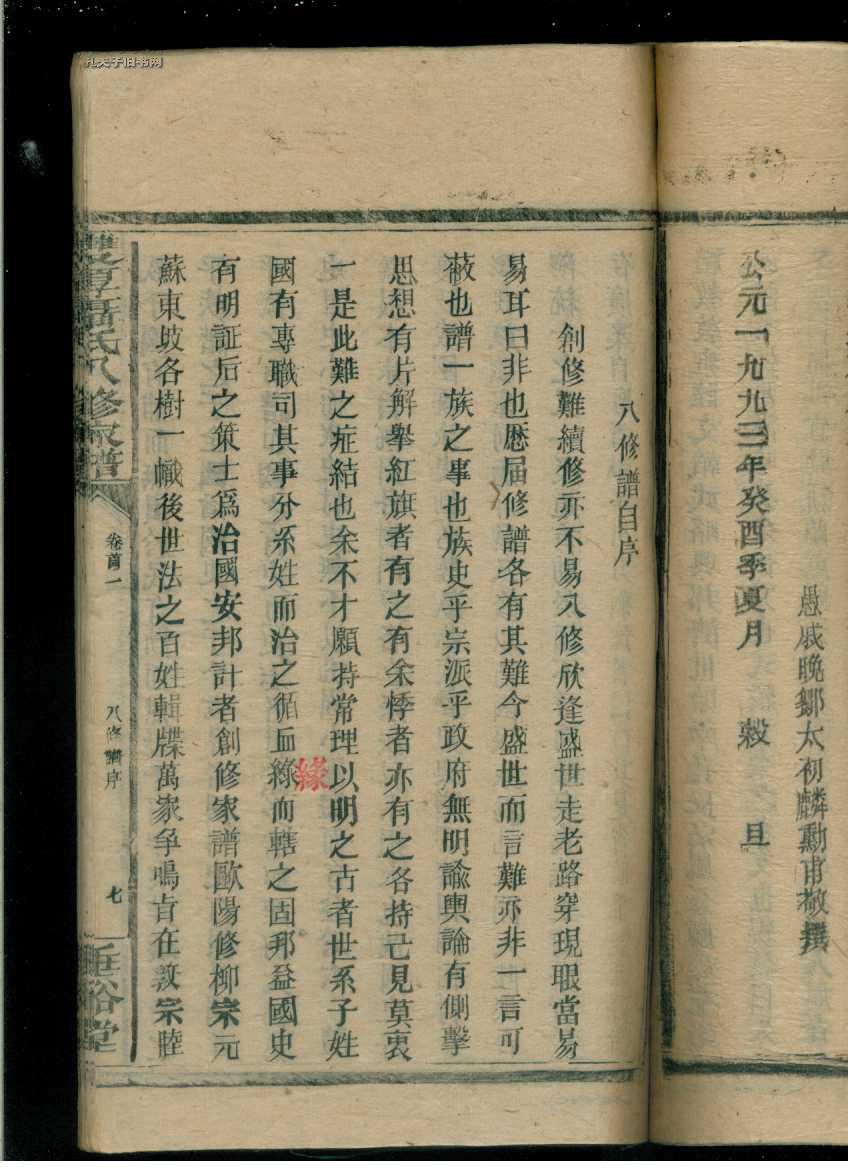 愚戚晚鄒太初麟勳甫敬撰
公元一九九三年癸酉季夏月 穀旦
八修譜自序
創修難續修亦不易八修欣逢盛世走老路穿現眼當易
易耳曰非也歷届修譜各有其難今盛世而言難亦非一言可
蔽也譜一族之事也族史乎宗派乎政府無明諭輿論有側擊
思想有片解舉紅旗者有之有余悸者亦有之各持己見莫衷
一是此難之症結也余不才願持常理以明之古者世系子姓
國有專職司其事分系姓而治之循血綠而轄之固邦益國史
緣
有明証后之策士爲治國安邦計者創修家譜歐陽修柳宗元
蘇東坡各樹一幟後世法之百姓輯牒萬家争鳴旨在敦宗睦
雙 氏八修家譜
卷首一
八修譜序
七
垂裕堂
孔夫子旧书网